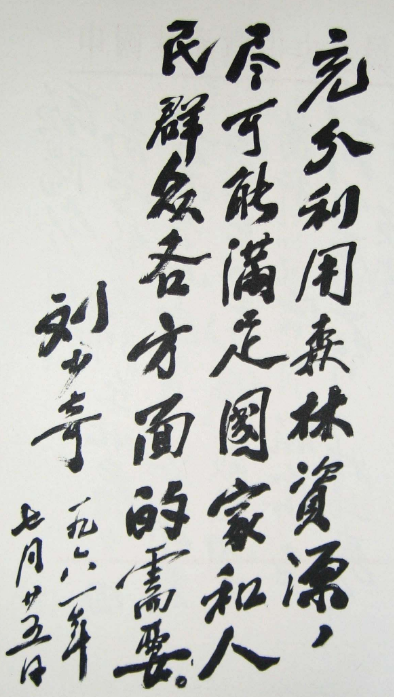 充分利用森林資源，
尽可能滿足國家和人
民群众各方面的需要。
刘少奇
一九六一年
七月廿五日